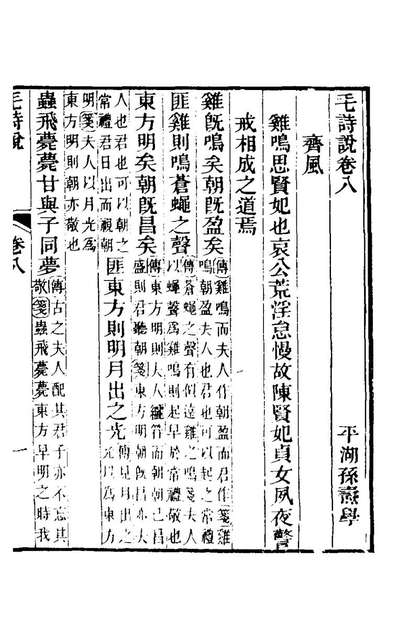 毛詩說卷八
平湖孫燾學
齊風
雞鳴思賢妃也哀公荒淫怠慢故陳賢妃貞女夙夜警
戒相成之道焉
雞既鳴矣朝既盈矣
傳雞鳴而夫人作朝盈而君作箋雞
鳴朝盈夫人也君也可以起之常禮
匪雞則鳴蒼蠅之聲
傳蒼蠅之聲有似遠雞之鳴箋夫人
以蠅聲爲雞鳴則起早於常禮敬也
東方明矣朝既昌矣
傳東方明則夫人纚笄而朝朝已昌
盛則君聽朝箋東方明朝既昌亦夫
人也君也可以朝之
常禮君日出而視朝
匪東方則明月出之光
傳見月出之
光以爲東方
明箋夫人以月光爲
東方明則朝亦敬也
蟲飛薨薨甘與子同夢
傳古之夫人配其君子亦不忘其
敬箋蟲飛薨薨東方早明之時我
毛詩說
卷八
一